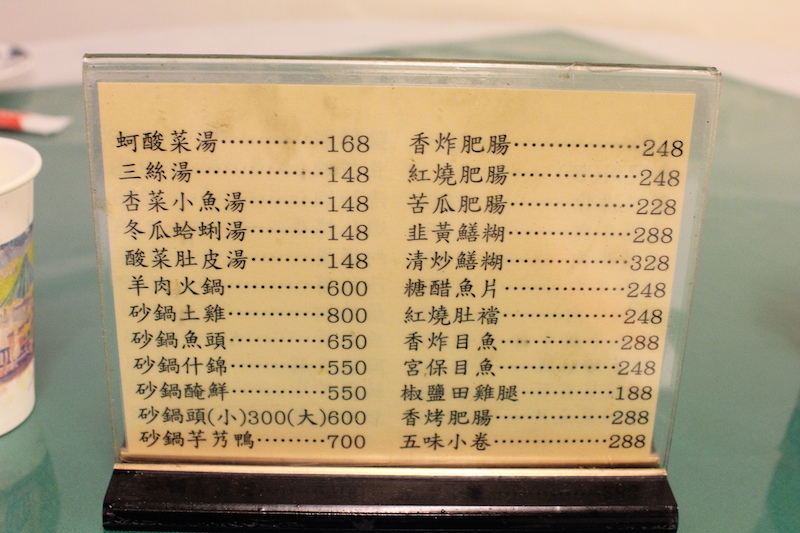 蚵酸菜湯…………168
三絲湯……………148
杏菜小魚湯………148
冬瓜蛤蜊湯………148
酸菜肚皮湯………148
羊肉火鍋…………600
砂鍋土雞…………800
砂鍋魚頭…………650
砂鍋什錦…………550
砂鍋醃鮮…………550
砂鍋頭(小)300(大)600
砂鍋芋艿鴨………700
香炸肥腸……………248
紅燒肥腸……………248
苦瓜肥腸……………228
韭黃鱔糊……………288
清炒鱔糊……………328
糖醋魚片……………248
紅燒肚襠……………248
香炸目魚……………288
宮保目魚……………248
椒鹽田雞腿…………188
香烤肥腸……………288
五味小卷……………288